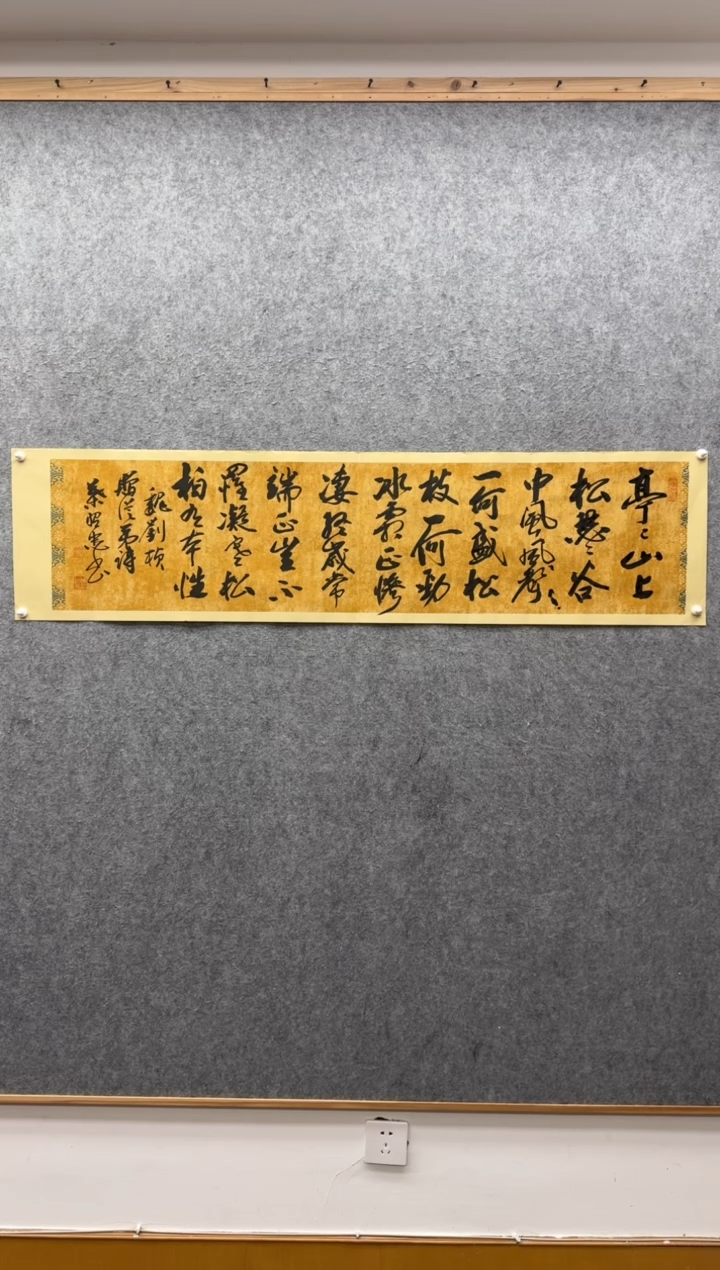 亭〻山上
松瑟〻谷
中風風聲
一何盛松
枝一何勁
冰霜正慘
凄終歲常
端正豈不
罹凝寒松
柏有本性
魏劉楨
贈從弟詩
書